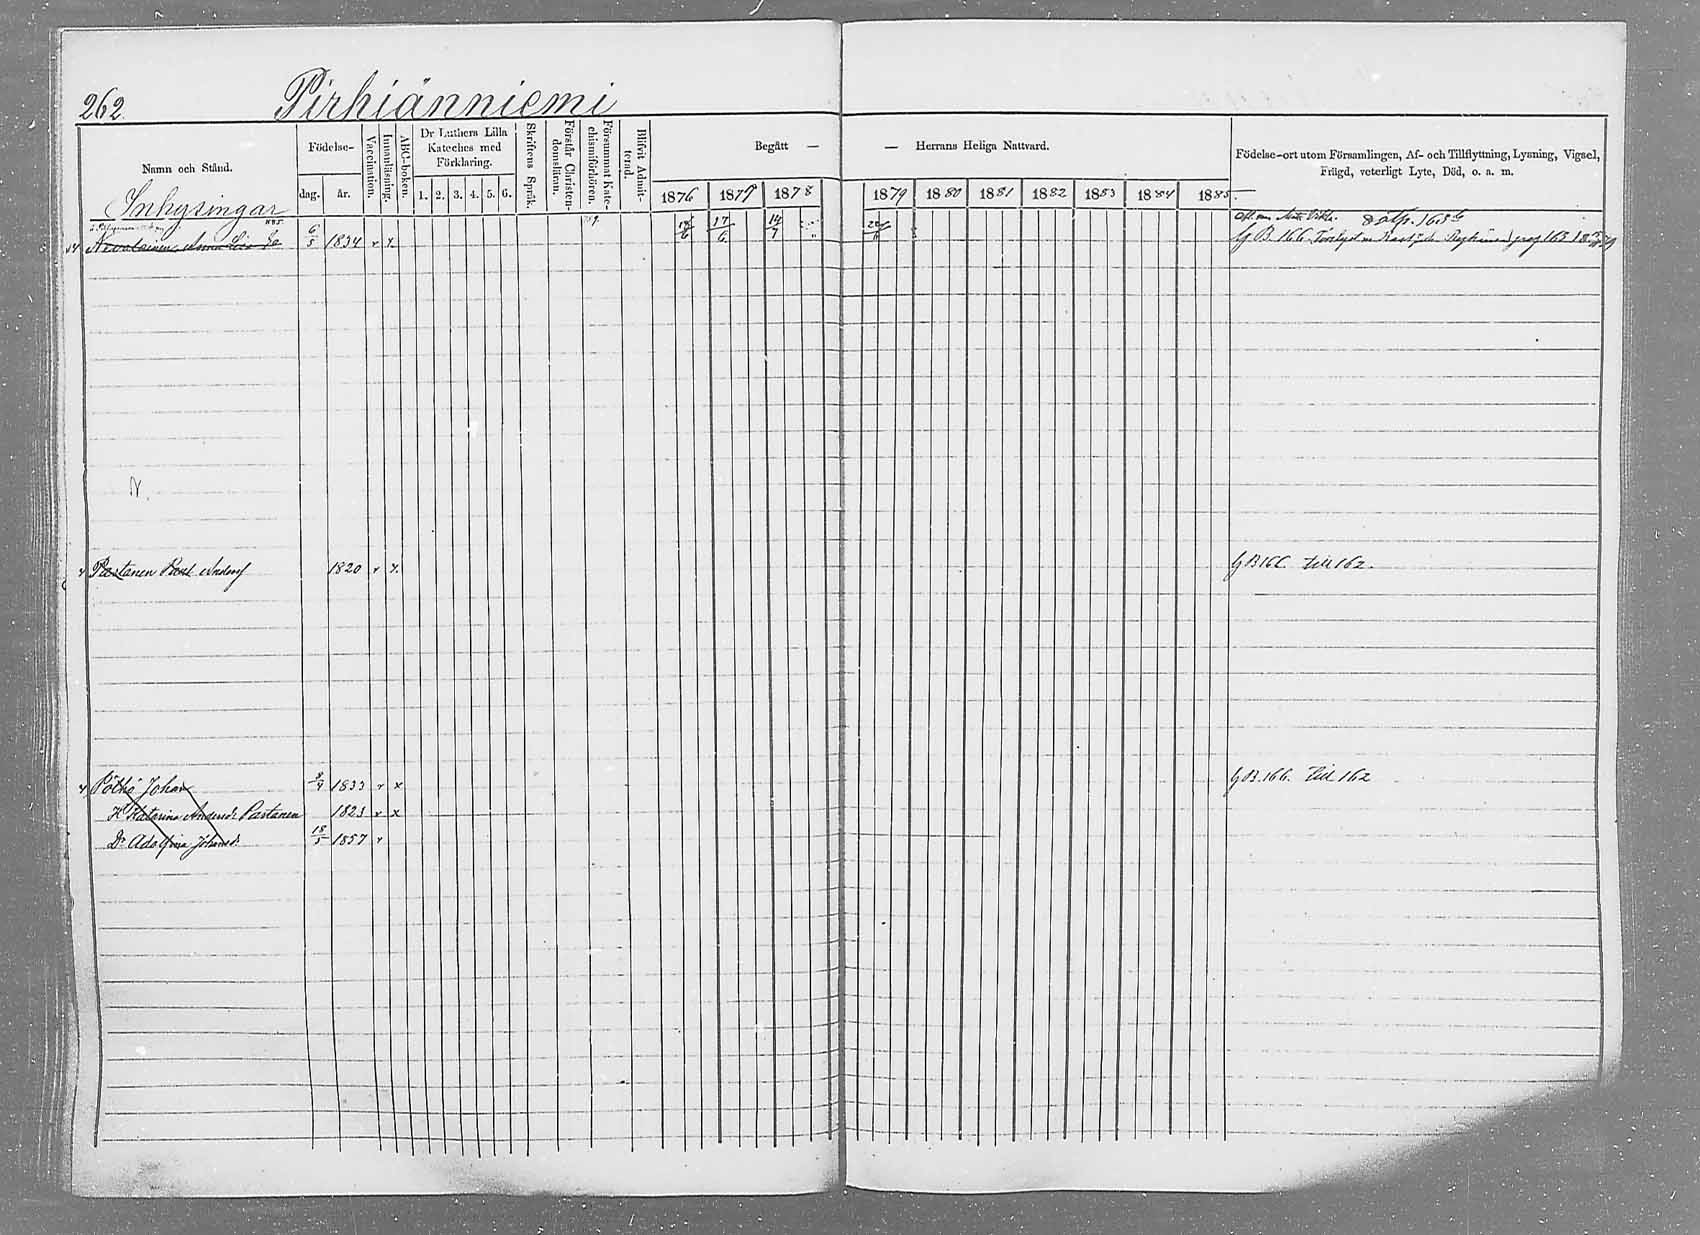 262. Pirhiänniemi
Namn och Stånd.
Födelse-
dag. år.
Vaccination.
Innanläsning.
ABC-boken.
Dr Luthers Lilla Kateches med Förklaring.
1. 2. 3. 4. 5. 6.
Skriftens Språk.
Förstår Christendomsläran.
Försummat Katechismiförhören.
Blifvit Admitterad.
Begått — — Herrans Heliga Nattvard.
1876 1877 1878 1879 1880 1881 1882 1883 1884 1885
Födelse-ort utom Församlingen, Af- och Tillflyttning, Lysning, Vigsel,
Frägd, veterligt Lyte, Död, o. a. m.
Inhysingar
Anna Lisa 6/5 1834 v x. 17/6 14/7
G B. 166. pag 165
Partanen Paul Anderss 1820 v x. G B 166. till 162.
Pölhö Johan 1833 v x G B. 166. till 162
H. Katarina Andersdr Partanen 1823 v x
Dr Adolfina Johansdr 18/5 1857 v